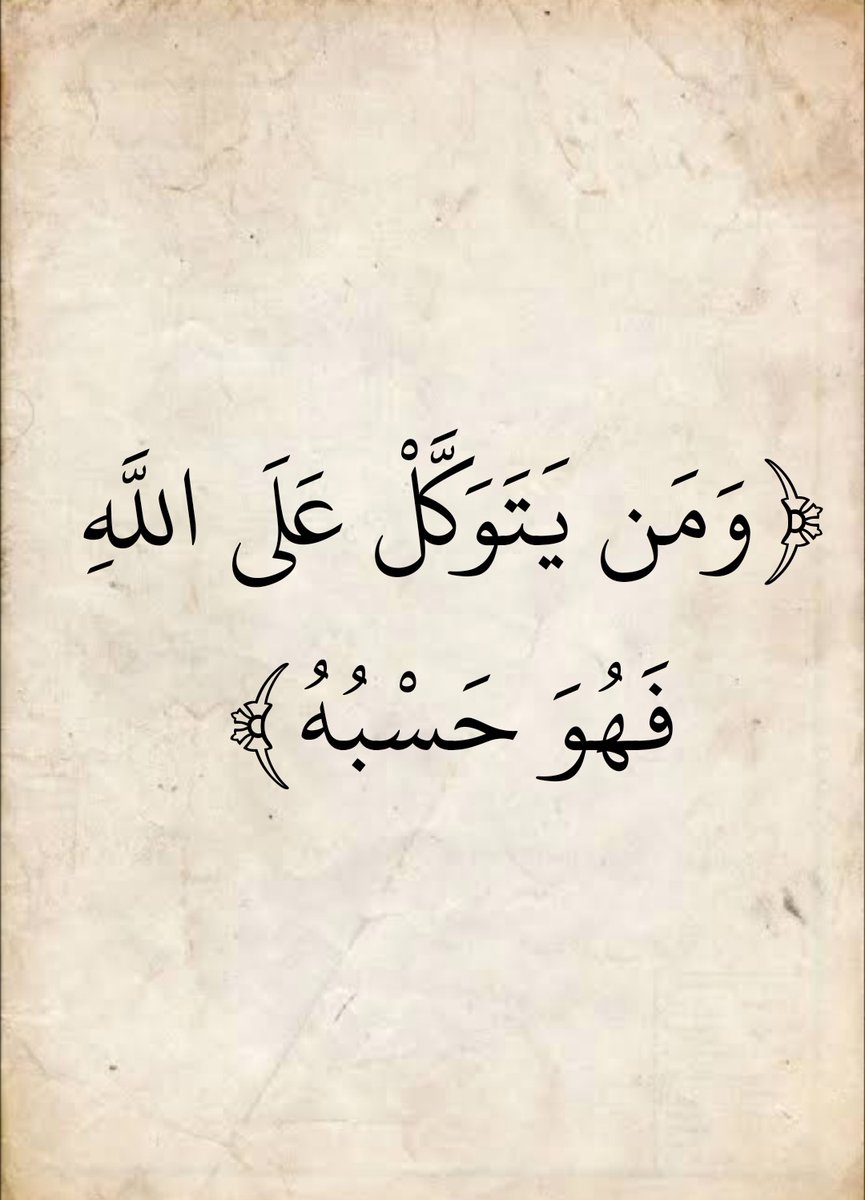 ﴿وَمَن يَتَوَكَّلْ عَلَى اللَّهِ
فَهُوَ حَسْبُهُ﴾